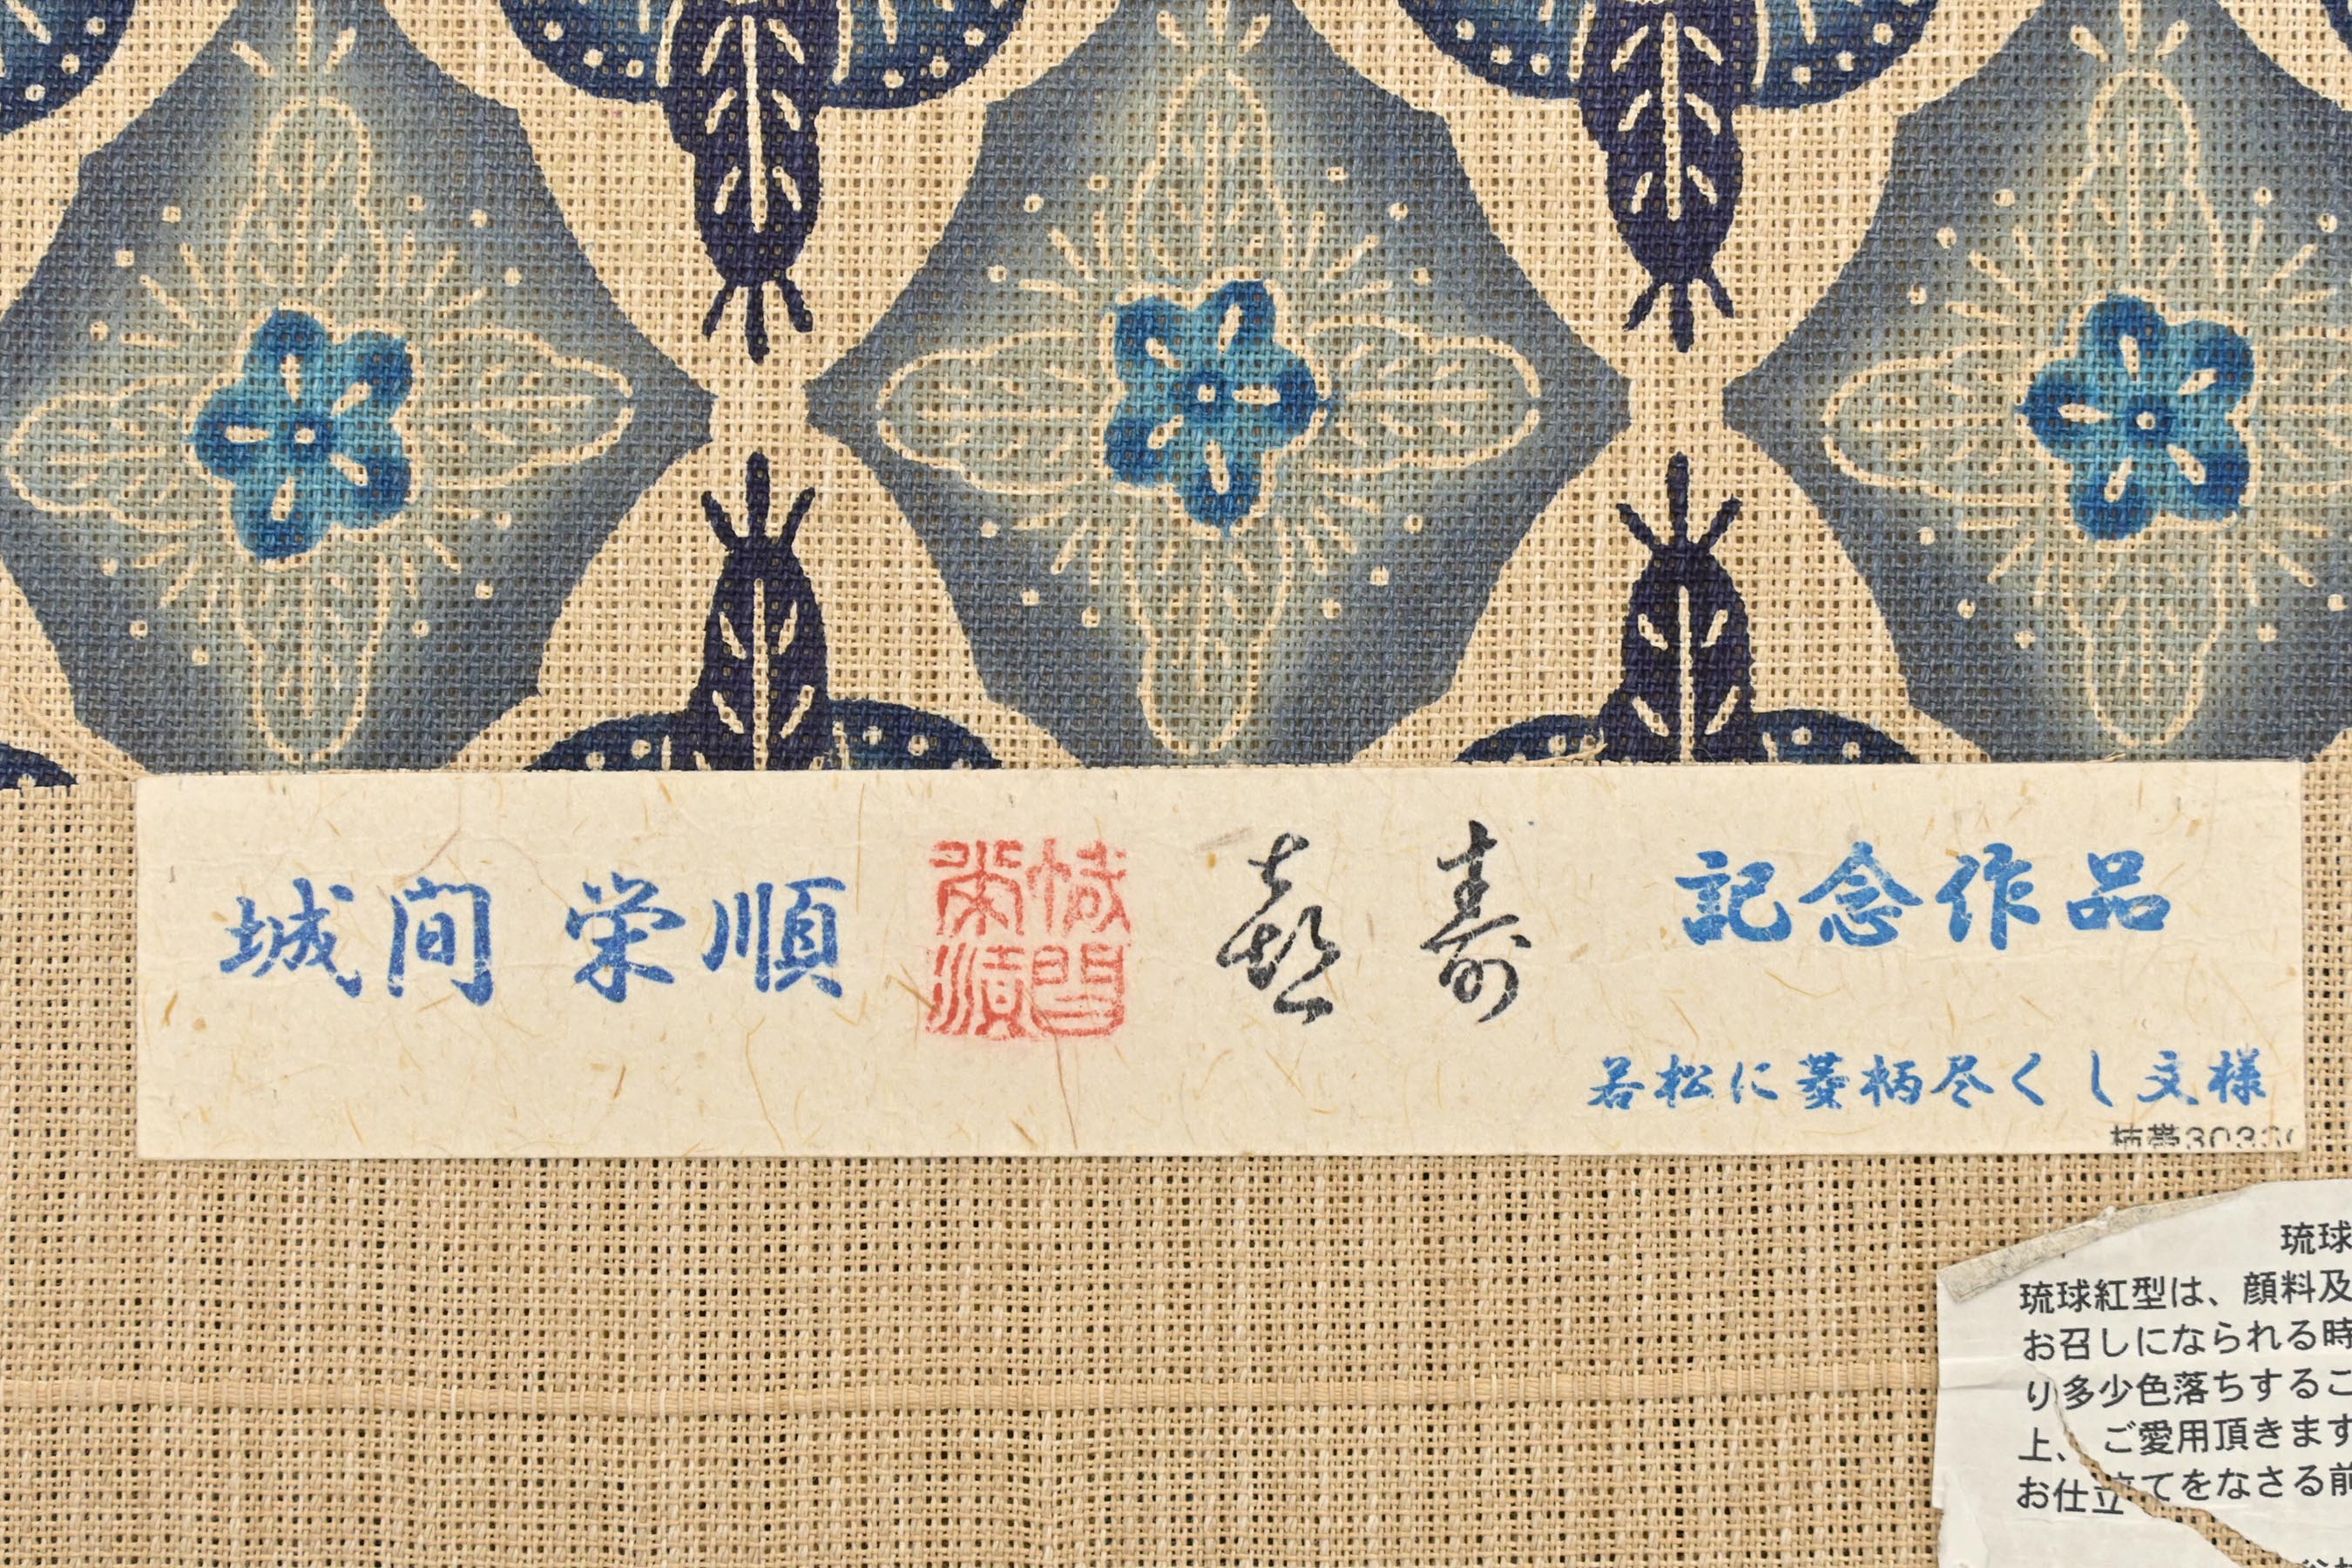 城間 栄順 城間栄順 喜 寿 記念作品
若松に菱柄尽くし文様
柿帯3033
琉球
琉球紅型は、顔料及
お召しになられる時
り多少色落ちするこ
上、ご愛用頂きます
お仕立てをなさる前